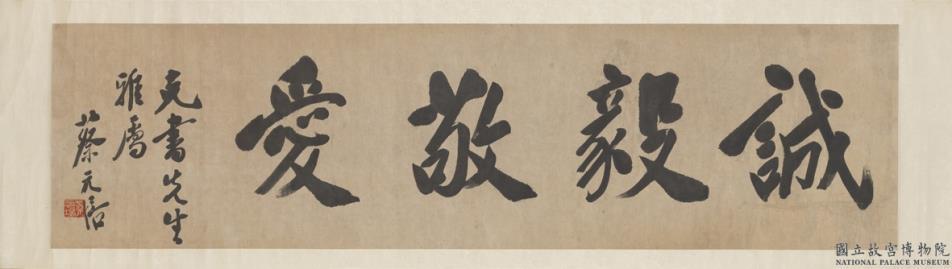 誠毅敬愛
克書先生
雅屬
蔡元培
國立故宮博物院
NATIONAL PALACE MUSEUM